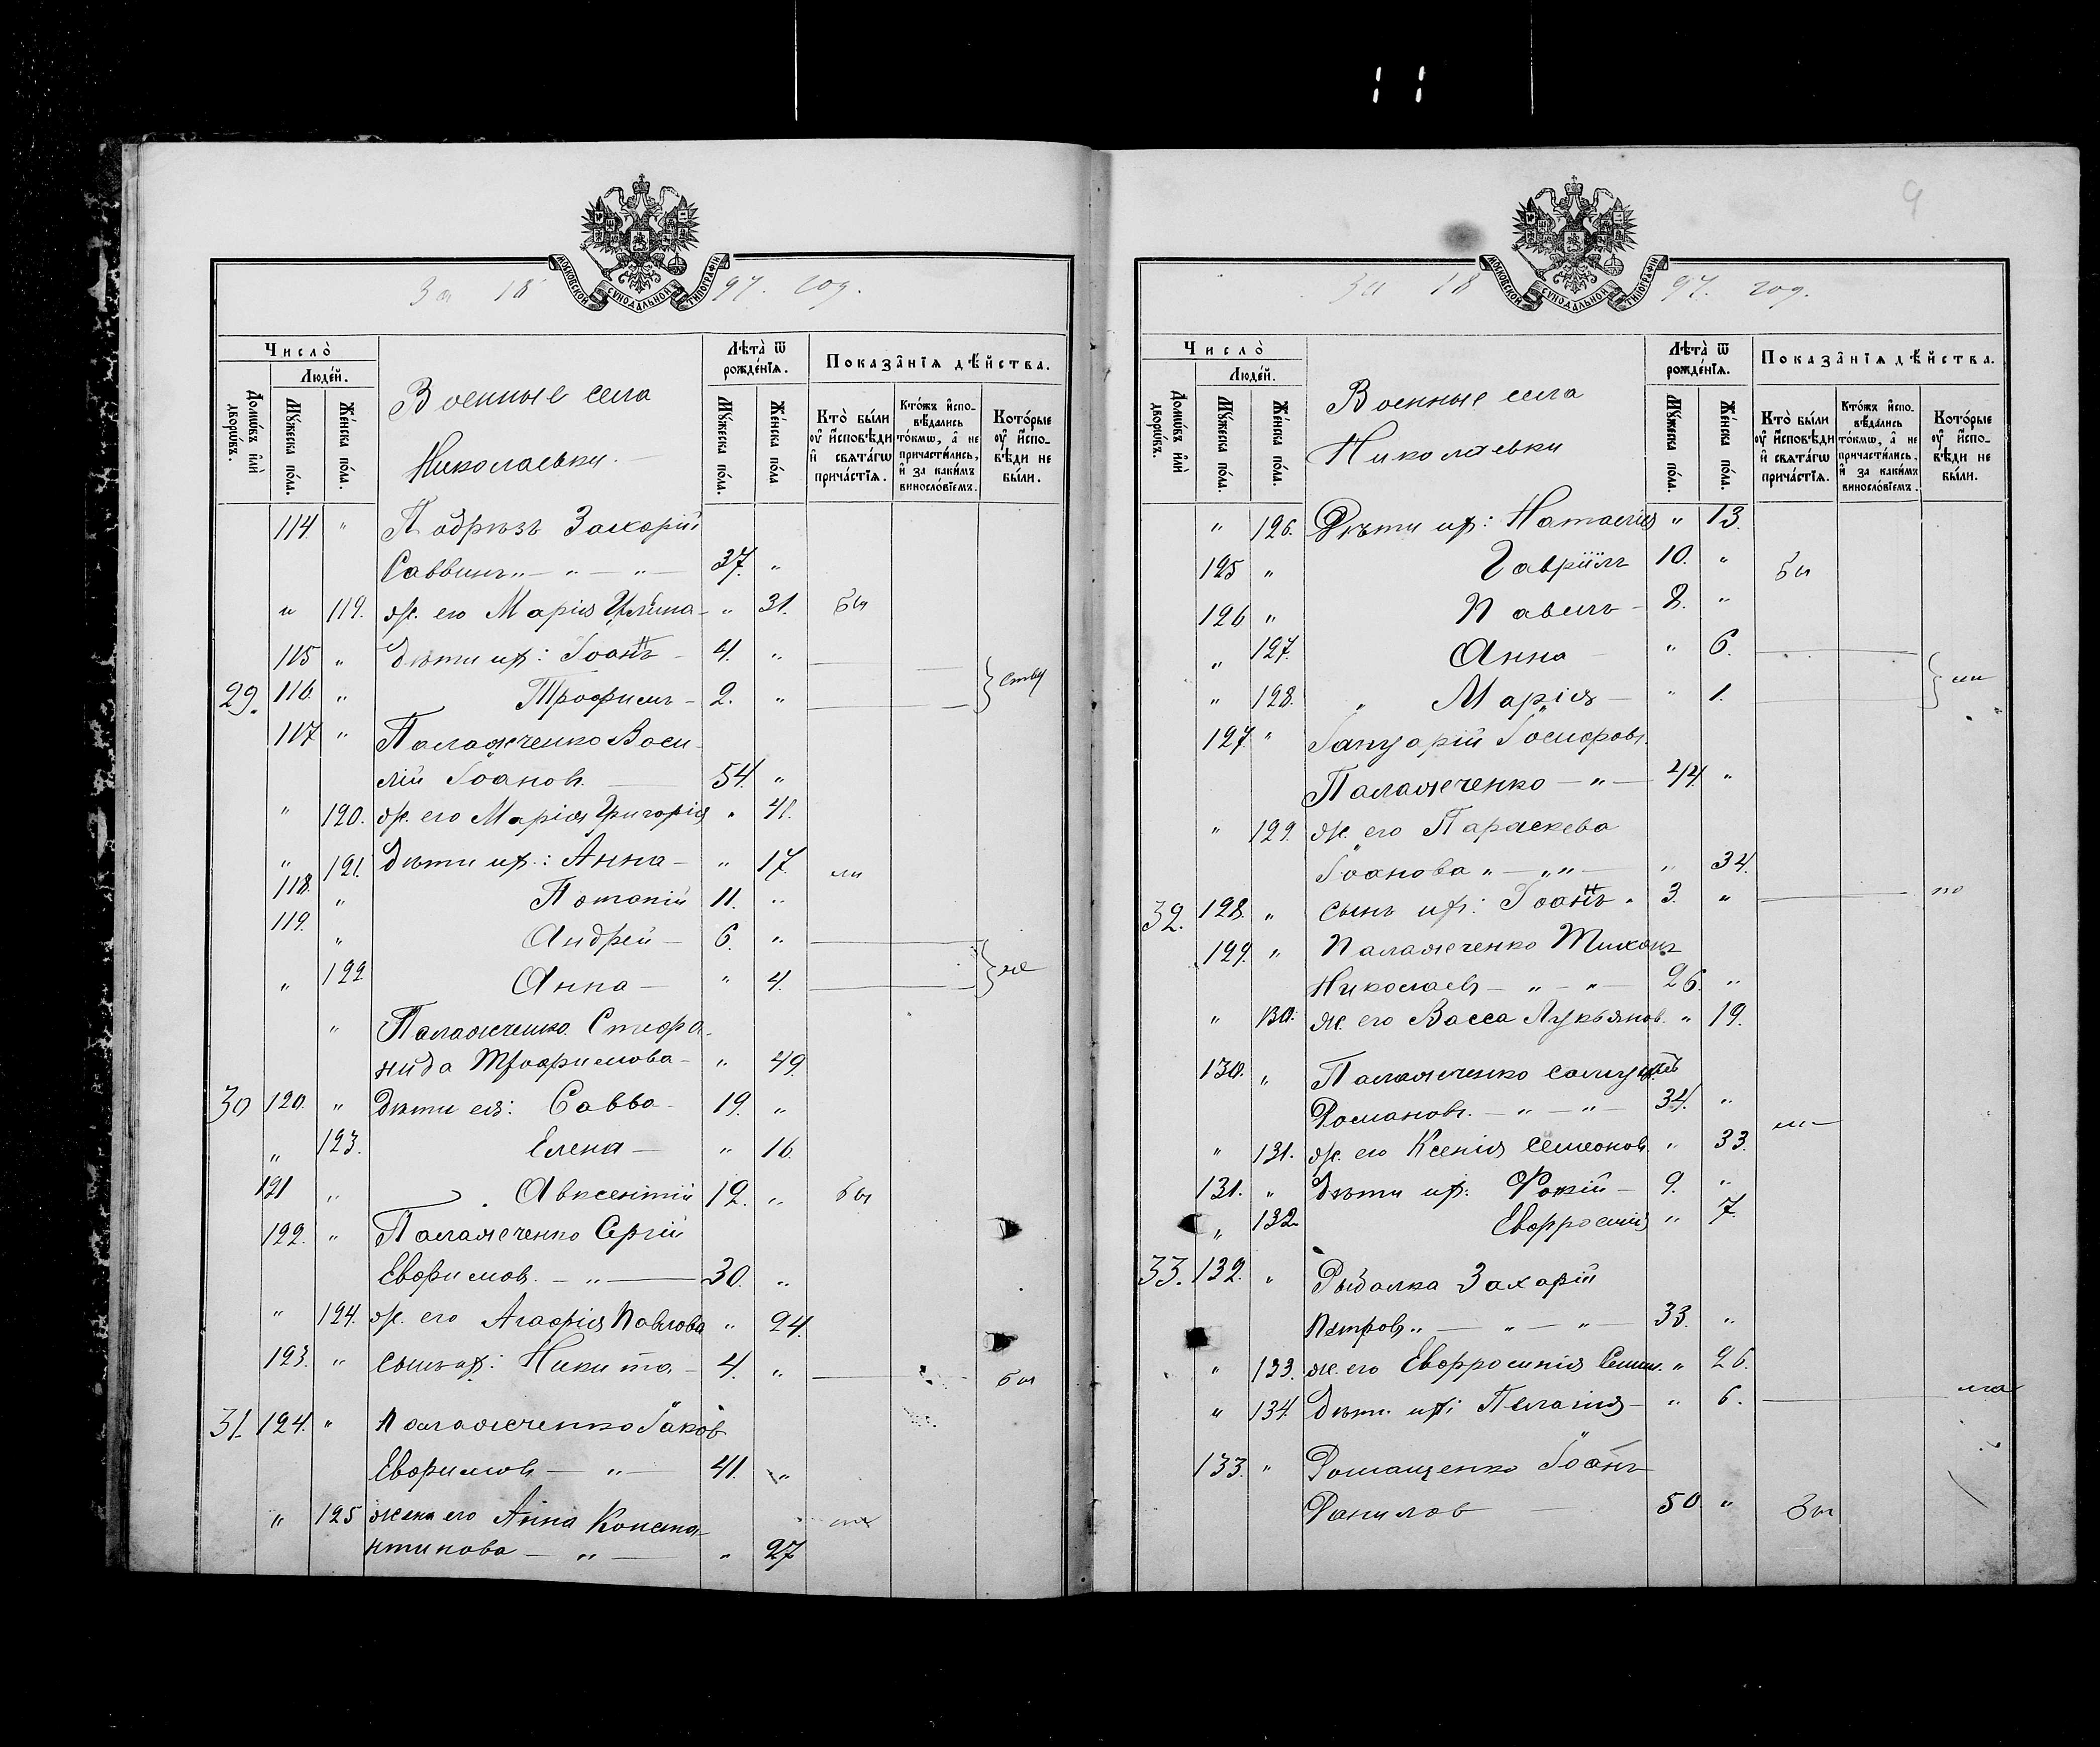 МОСКОВСКОЙ СѴНОДАЛЬНОЙ ТИПОГРАФІИ
За 18 97. год.
Число̀
Людéй.
Домѡ́въ и҆лѝ дворѡ́въ.
Мꙋ́жеска по́ла.
Же́нска по́ла.
Военные села
Николаевки
Лѣта̀ ѿ рожде́нїѧ.
Мꙋ́жеска по́ла.
Же́нска по́ла
Показа̑нїѧ дѣ́йства.
Кто̀ бы́ли оу҆ и҆сповѣ́ди и҆ свѧта́гѡ прича́стїѧ.
Кто́жъ и҆спо-вѣ́дались то́кмѡ, а҆ не причасти́лись, и҆ за каки́мъ винослові́емъ.
Кото́рые оу҆ и҆спо-вѣ́ди не бы́ли.
114. " Подрѣзъ Захарій
Саввинъ " — " — " — 37. "
" 119. ж. его Марія — " 31. бы
115 " дѣти их: Іоаннъ — 4. "
29. 116. " Трофимъ — 2. " ству
117 " Паламеченко Васи-
лій Іоанов. — 54. "
" 120. ж. его Марія Григорія " 41.
" 121. дѣти их: Анна — " 17. ли
118. " Потапій 11. "
119. " Андрей — 6. "
" 122 Анна — " 4. же
" Паламеченко Стефа-
нида Трофимова — " 49.
30 120. " дѣти ея: Савва — 19. "
" 123. Елена — " 16.
121 " Авксентій 12. " бы
122. " Паламеченко Сергій
Евфимов. — " — 30. "
" 124. ж. его Агафія Павлова " 24.
123. " сынъ их: Никита — 4. " бы
31. 124. " Паламеченко Іаков
Евфимов — " — 41. "
" 125 жена его Анна Конста-
нтинова — " — " 27
9
МОСКОВСКОЙ СѴНОДАЛЬНОЙ ТИПОГРАФІИ
За 18 97. год.
Число̀
Людéй.
Домѡ́въ и҆лѝ дворѡ́въ.
Мꙋ́жеска по́ла.
Же́нска по́ла.
Военные села
Николаевки
Лѣта̀ ѿ рожде́нїѧ.
Мꙋ́жеска по́ла.
Же́нска по́ла.
Показа̑нїѧ дѣ́йства.
Кто̀ бы́ли оу҆ и҆сповѣ́ди и҆ свѧта́гѡ прича́стїѧ.
Кто́жъ и҆спо-вѣ́дались то́кмѡ, а҆ не причасти́лись, и҆ за каки́мъ винослові́емъ.
Кото́рые оу҆ и҆спо-вѣ́ди не бы́ли.
" 126. Дѣти их: Наталія " 13.
125 " Гавріилъ 10. " бы
126 " Павелъ — 8. "
" 127. Анна — " 6.
" 128. " Марія — " 1. ли
127. " Іануарій Іосифов.
Паламеченко — " — 44. "
" 129. ж. его Параскева
Іоанова " — " " — " 34.
32. 128. " сынъ их: Іоаннъ " 3. " по
129. " Паламеченко Тихонъ
Николаев — " — " — 26. "
" 130. ж. его Васса Лукьянов. " 19.
130. " Паламеченко Самуилъ
Романов. — " — " — 34. "
" 131. ж. его Ксенія Семеонов. " 33. ли
131. " дѣти их: Фокій — 9. "
" 132. Евфросинія " 7.
33. 132. " Рыбалка Захарій
Петров " — " — " — 33. "
" 133. ж. его Евфросинія Симеон. " 26.
" 134. дѣти их: Пелагія — " 6. ма
133. " Ромащенко Іоанъ
Данилов — 50. " бы